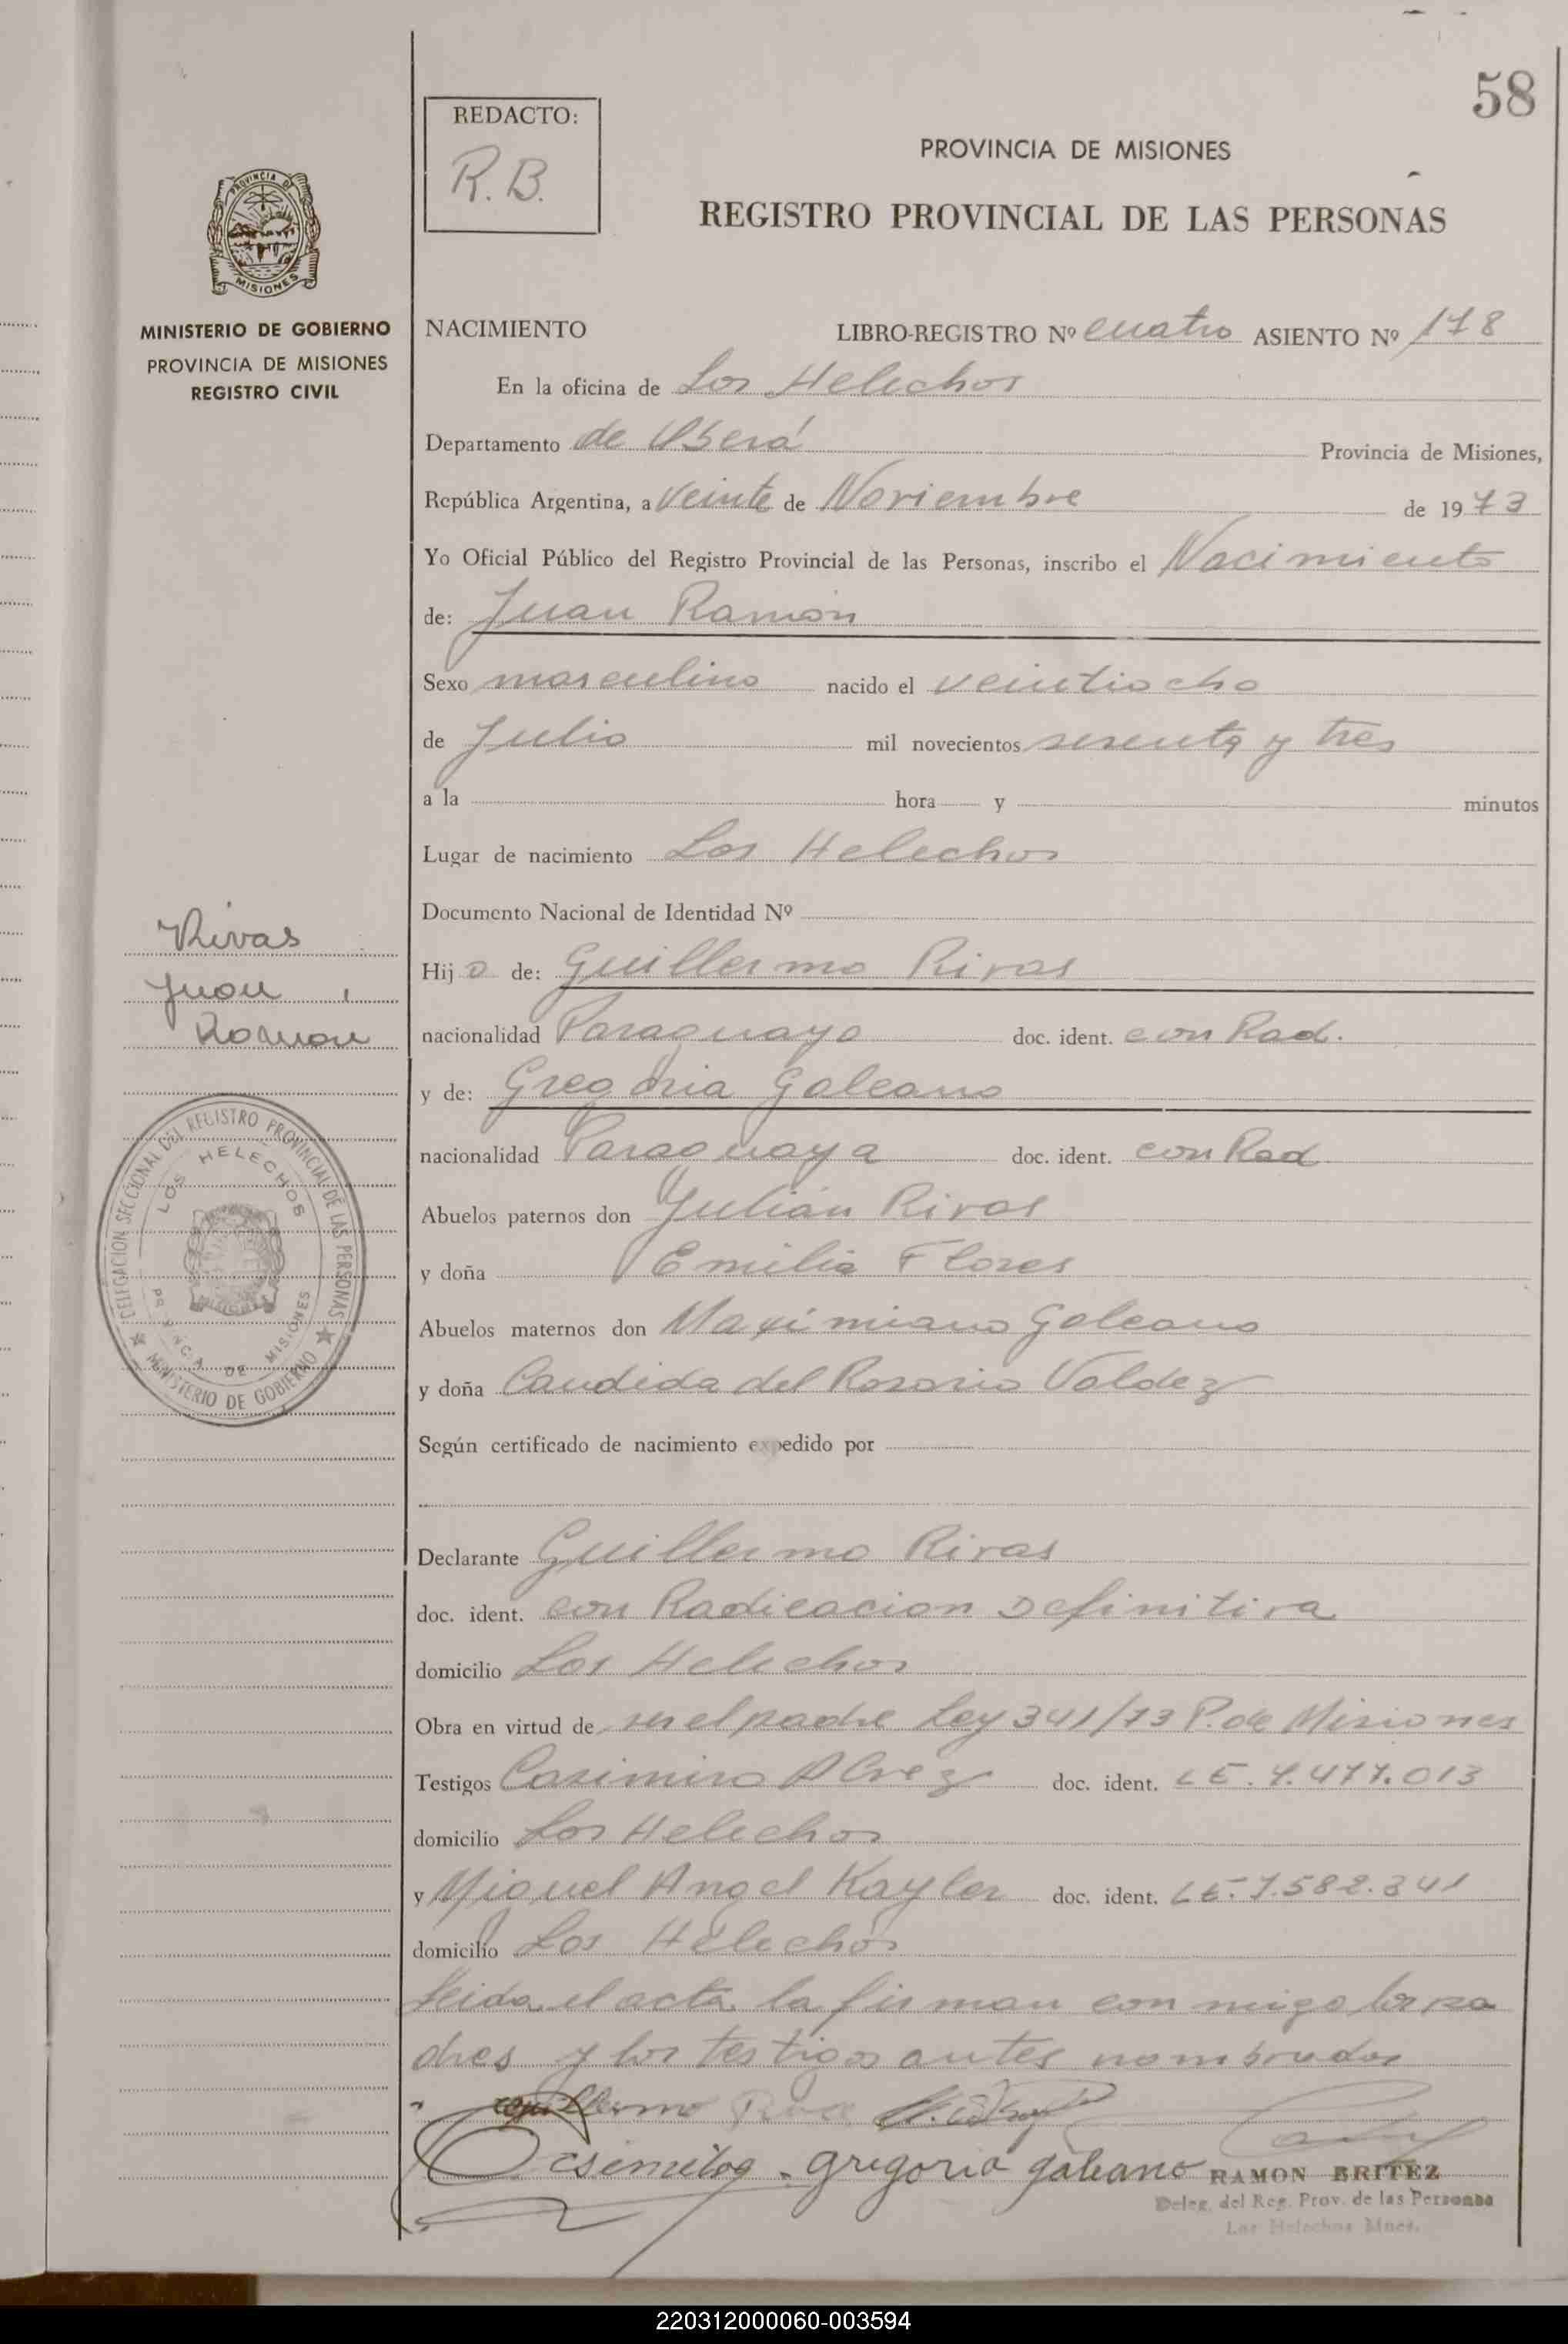 58
REDACTO:
R.B.
PROVINCIA DE MISIONES
REGISTRO PROVINCIAL DE LAS PERSONAS
PROVINCIA DE
MISIONES
MINISTERIO DE GOBIERNO
PROVINCIA DE MISIONES
REGISTRO CIVIL
NACIMIENTO LIBRO-REGISTRO Nº cuatro ASIENTO Nº 178
En la oficina de Los Helechos
Departamento de Oberá Provincia de Misiones,
República Argentina, a veinte de Noviembre de 1973
Yo Oficial Público del Registro Provincial de las Personas, inscribo el Nacimiento
de: Juan Ramón
Sexo masculino nacido el veintiocho
de Julio mil novecientos setenta y tres
a la hora y minutos
Lugar de nacimiento Los Helechos
Documento Nacional de Identidad Nº
Rivas
Juan
Ramon
Hijo de: Guillermo Rivas
nacionalidad Paraguayo doc. ident. con Rad.
y de: Gregoria Galeano
nacionalidad Paraguaya doc. ident. con Rad
Abuelos paternos don Julián Rivas
y doña Emilia Flores
Abuelos maternos don Maximiano Galeano
y doña Candida del Rosario Valdez
DELEGACION SECCIONAL DEL REGISTRO PROVINCIAL DE LAS PERSONAS
LOS HELECHOS
PROVINCIA DE MISIONES
MINISTERIO DE GOBIERNO
Según certificado de nacimiento expedido por
Declarante Guillermo Rivas
doc. ident. con Radicacion Definitiva
domicilio Los Helechos
Obra en virtud de ser el padre Ley 341/73 P. de Misiones
Testigos Casimiro Alvez doc. ident. LE. 7.477.013
domicilio Los Helechos
y Miguel Angel Kayler doc. ident. LE. 7.582.341
domicilio Los Helechos
Leida el acta la firman con migo los pa
dres y los testigos antes nombrados
Guillermo
gregoria galeano RAMON BRITEZ
Deleg. del Reg. Prov. de las Personas
Los Helechos Mnes.
220312000060-003594